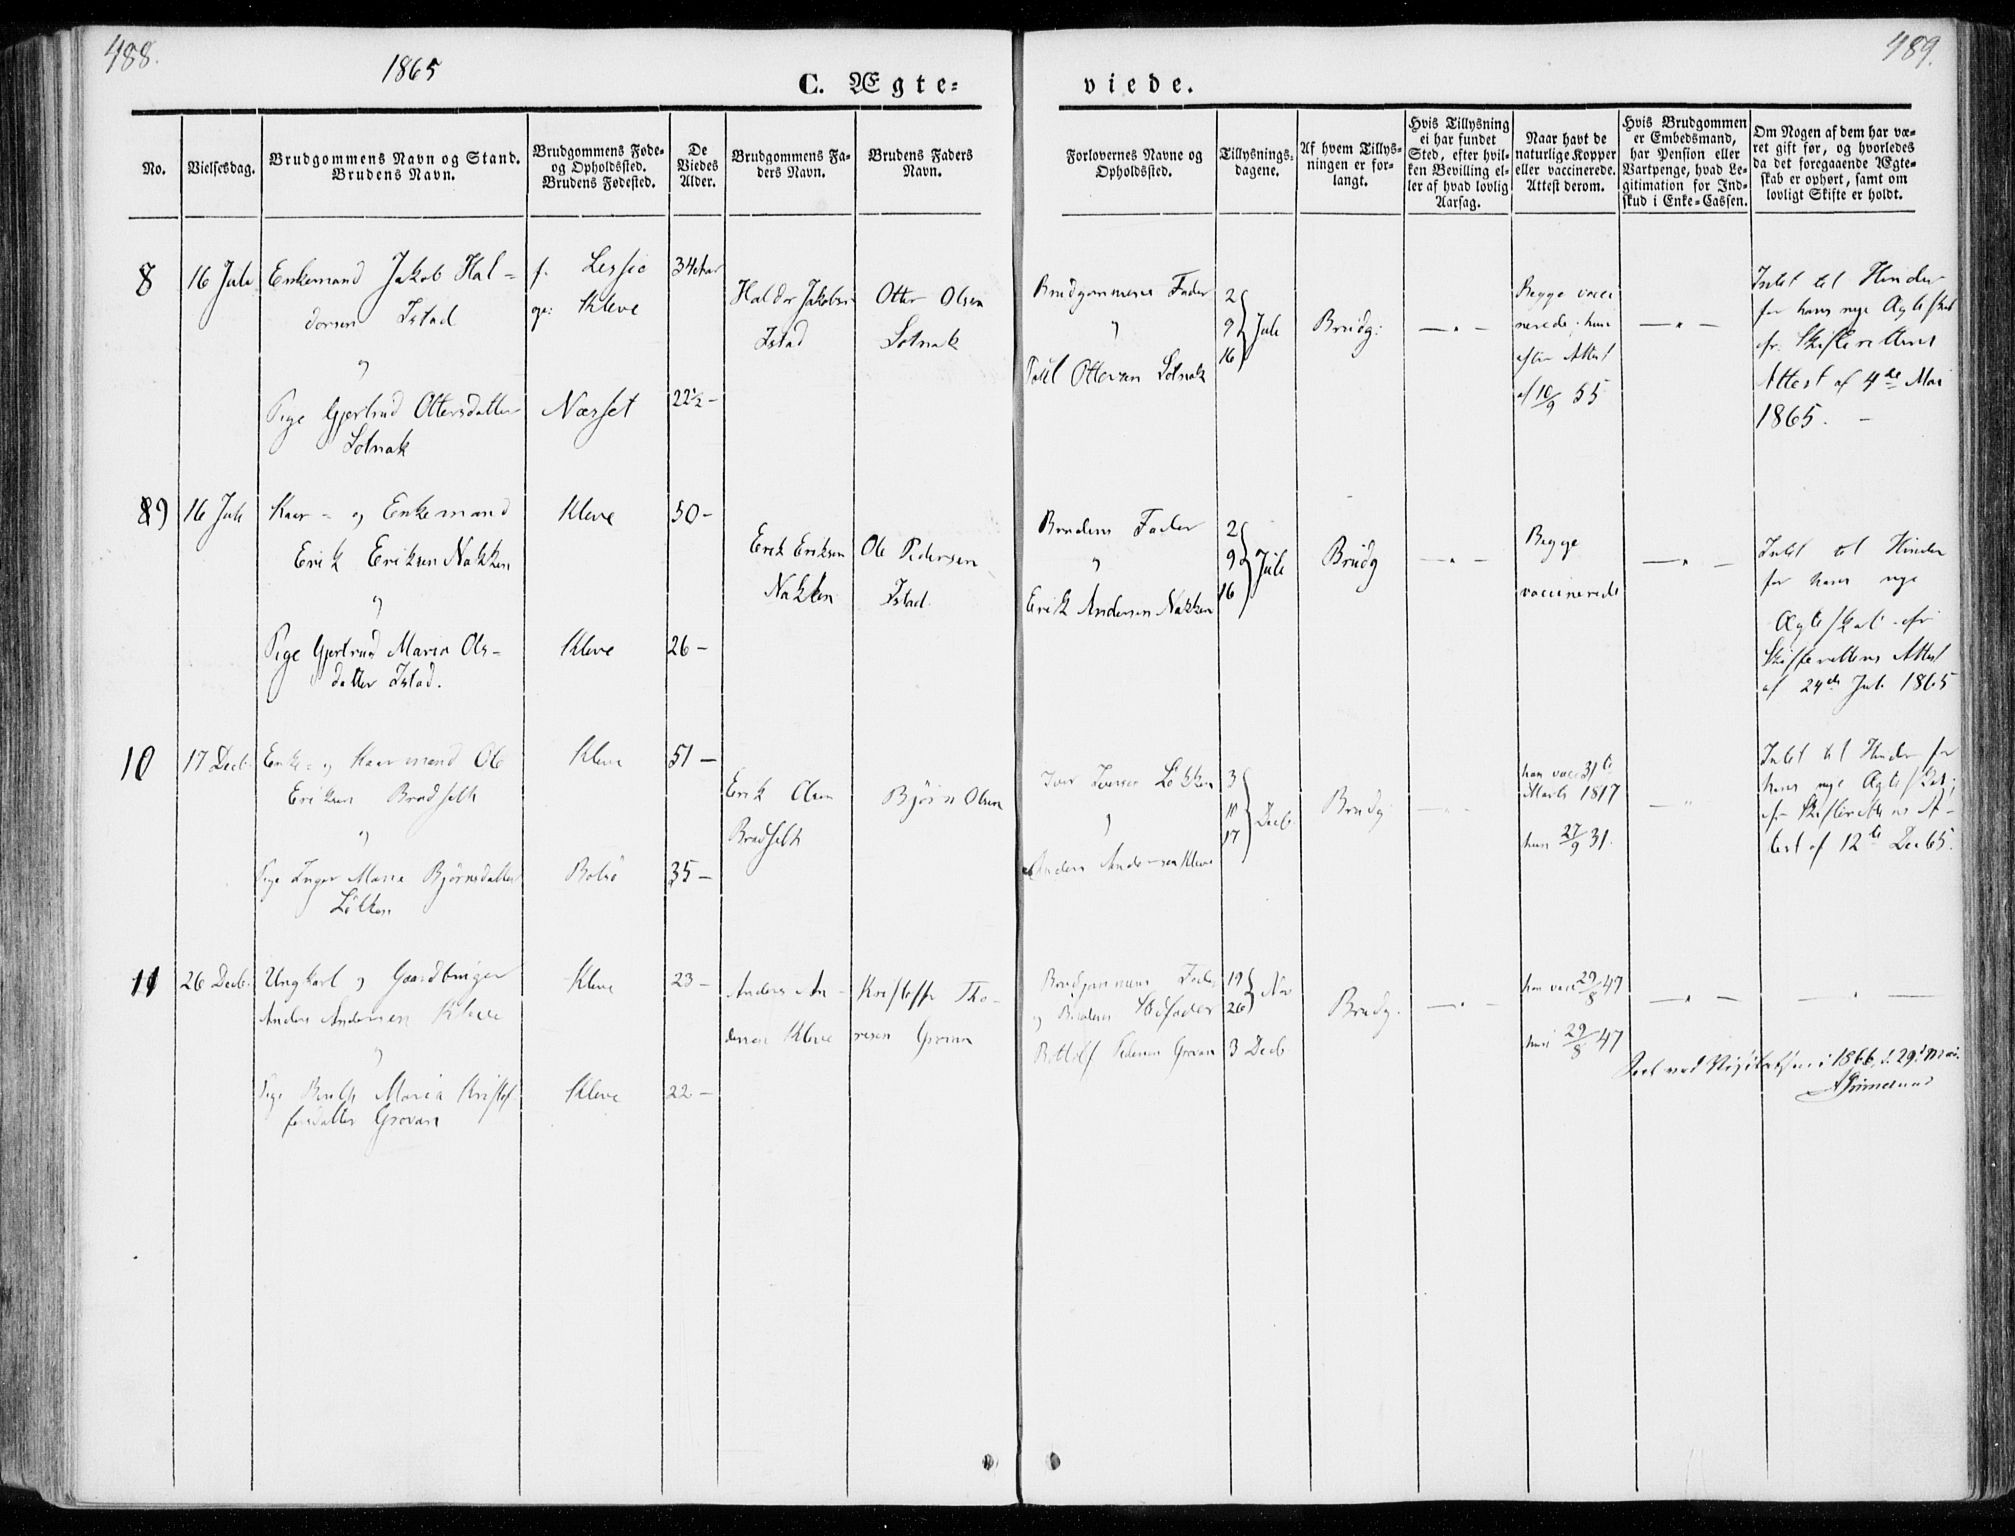 488.
1865
C. Ægte=
No.
Vielsesdag.
Brudgommens Navn og Stand.
Brudens Navn.
Brudgommens Føde-
og Opholdssted.
Brudens Fødested.
De
Viedes
Alder.
Brudgommens Fa-
ders Navn.
Brudens Faders
Navn.
8
16 Juli
Enkemand Jakob Hal-
dorsen Istad
"
Pige Gjertrud Ottersdatter
Solnak
f. Lessie
op: Kleve
Næsset
34 Aar
22½ -
Haldor Jakobsen
Istad
Otter Olsen
Solnak
9
16 Juli
Kaar- og Enkemand
Erik Eriksen Nakken
"
Pige Gjertrud Maria Ols-
datter Istad.
Kleve
Kleve
50 -
26 -
Erik Eriksen
Nakken
Ole Pedersen
Istad.
10
17 Decb.
Enke- og Kaarmand Ole
Eriksen Bradseth
"
Pige Inger Maria Bjørnsdatter
Løkken
Kleve
Bolsø
51 -
35 -
Erik Olsen
Bradseth
Bjørn Olsen
11
26 Decb.
Ungkarl og Gaardbruger
Anders Andersen Kleve
"
Pige Maria Kristof-
fersdatter Grovan
Kleve
Kleve
23 -
22 -
Anders An-
dersen Kleve
Kristoffer Tho-
resen Grovan
489.
viede.
Forlovernes Navne og
Opholdssted.
Tillysnings-
dagene.
Af hvem Tillys-
ningen er for-
langt.
Hvis Tillysning
ei har fundet
Sted, efter hvil-
ken Bevilling el-
ler af hvad lovlig
Aarsag.
Naar havt de
naturlige Kopper
eller vaccinerede.
Attest derom.
Hvis Brudgommen
er Embedsmand,
har Pension eller
Vartpenge, hvad Le-
gitimation for Ind-
skud i Enke-Cassen.
Om Nogen af dem har væ-
ret gift før, og hvorledes
da det foregaaende Ægte-
skab er ophørt, samt om
lovligt Skifte er holdt.
Brudgommens Fader
"
Ottersen Solnak
2
9
16
Juli
Brudg:
— " —
Begge vacci
nerede. hun
efter Attest
af 10/9 55
— " —
Intet til Hinder
for hans nye Ægteskab
efr. Skifterettens
Attest af 4de Mai
1865. -
Brudens Fader
"
Erik Andersen Nakken
2
9
16
Juli
Brudg
— " —
Begge
vaccinerede
— " —
Intet til Hinder
for hans nye
Ægteskab - efr
Skifterettens Attest
af 24de Juli 1865
Iver Iversen Løkken
"
Anders Andersen Kleve
3
10
17
Decb.
Brudg
— " —
han vacc 31te
Marts 1817
hun 27/9 31.
— " —
Intet til Hinder for
hans nye Ægteskab;
efr Skifterettens At-
test af 12te Dec 65.
Brudgommens Fader
og Brudens Stifader
Bottolf Pedersen Grovan
19
26
Nov
3 Decb.
Brudg.
— " —
han vacc 29/8 47
hun 29/8 47
— " —
— " —
Seet ved Visitatsen i 1866, d. 29. Mai.